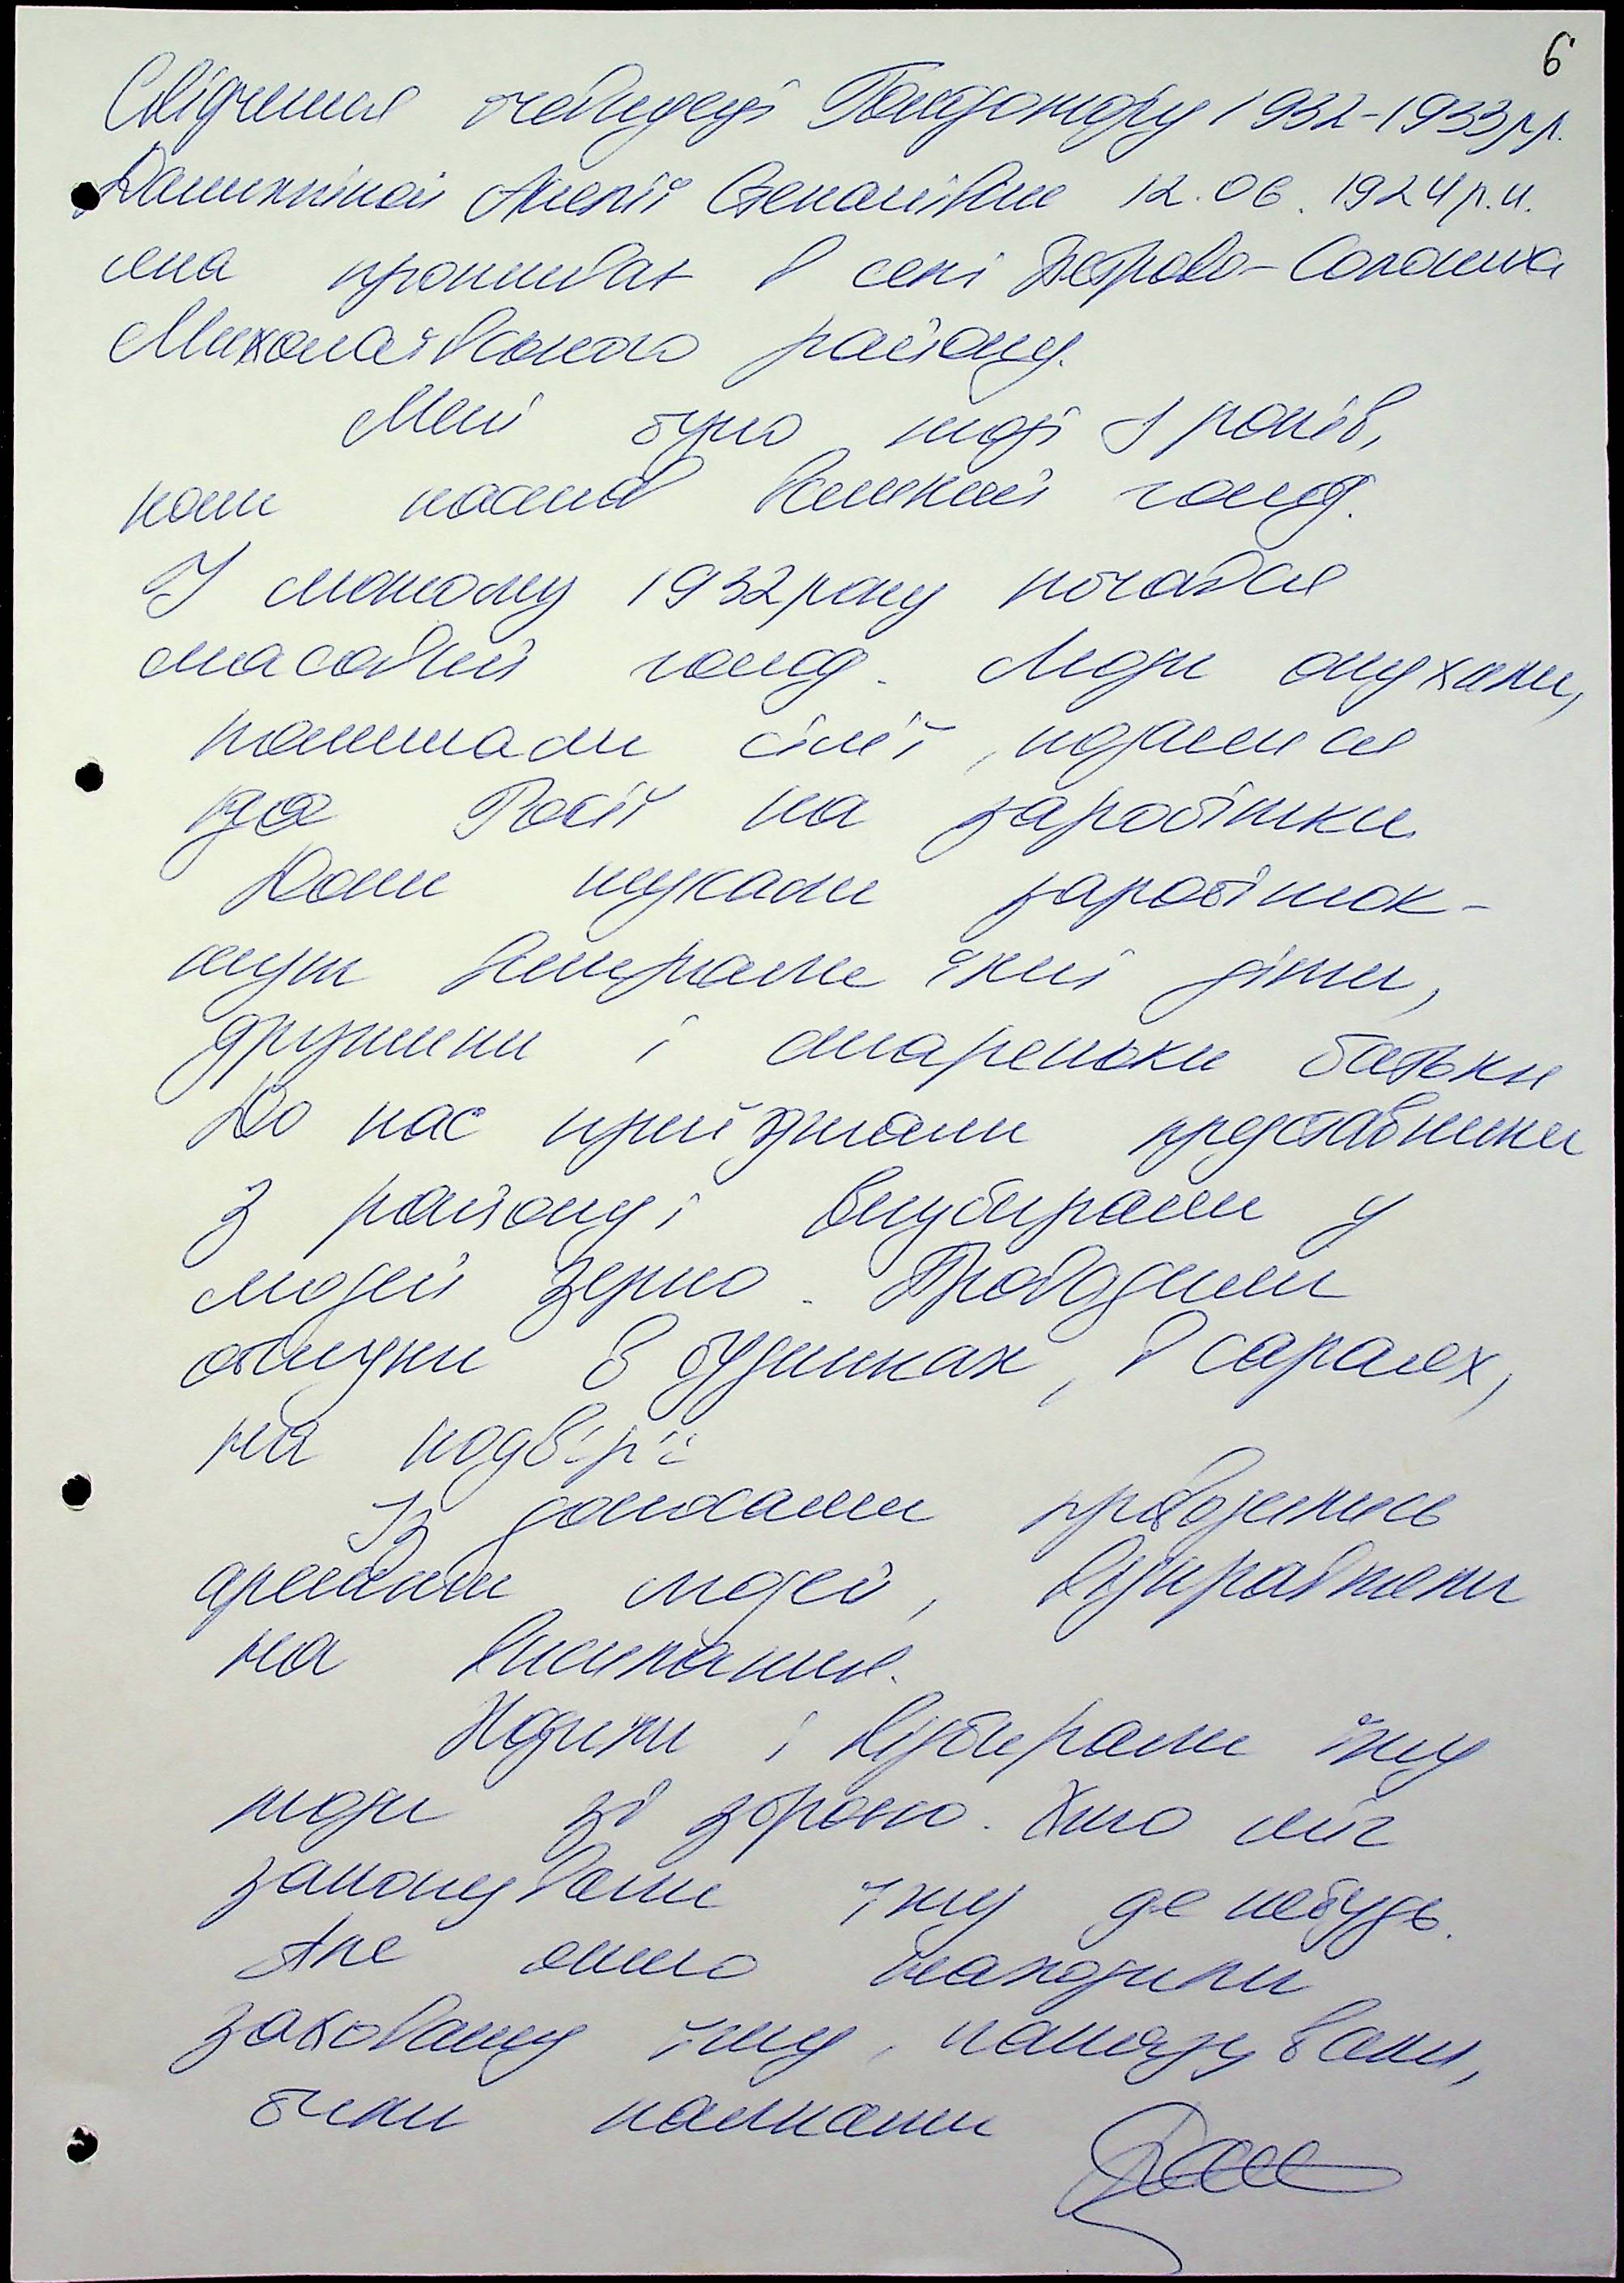 6
Свідчення очевидеці Голодомору 1932-1933 р.р.
Степанівни 12.06.1924 р.н.
яка проживає в селі Петрово-Солониха
Миколаївського району.
Мені було тоді 8 років,
коли настав великий голод.
У лютому 1932 року почався
масовий голод. Люди опухали,
полишали сім'ї, подалися
до Росії на заробітки.
Доки шукали заробіток -
тут вмирали їхні діти,
дружини і старенькі батьки
До нас приїзжали представники
з району і видбирали у
людей зерно. Проводили
обшуки в будинках, в сараях,
на подвір'ї
Із доносами проводились
арешти людей, відправляли
на висилання.
Ходили і відбирали їжу
люди зі зброєю. Хто міг
закопували їжу де небудь.
Але якщо находили
заховану їжу, наказували,
били палками